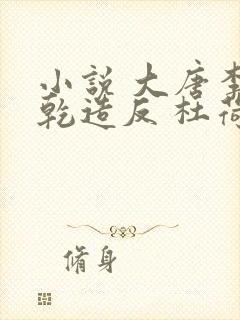 小說 大唐李
乾造反 杜荷
脩身